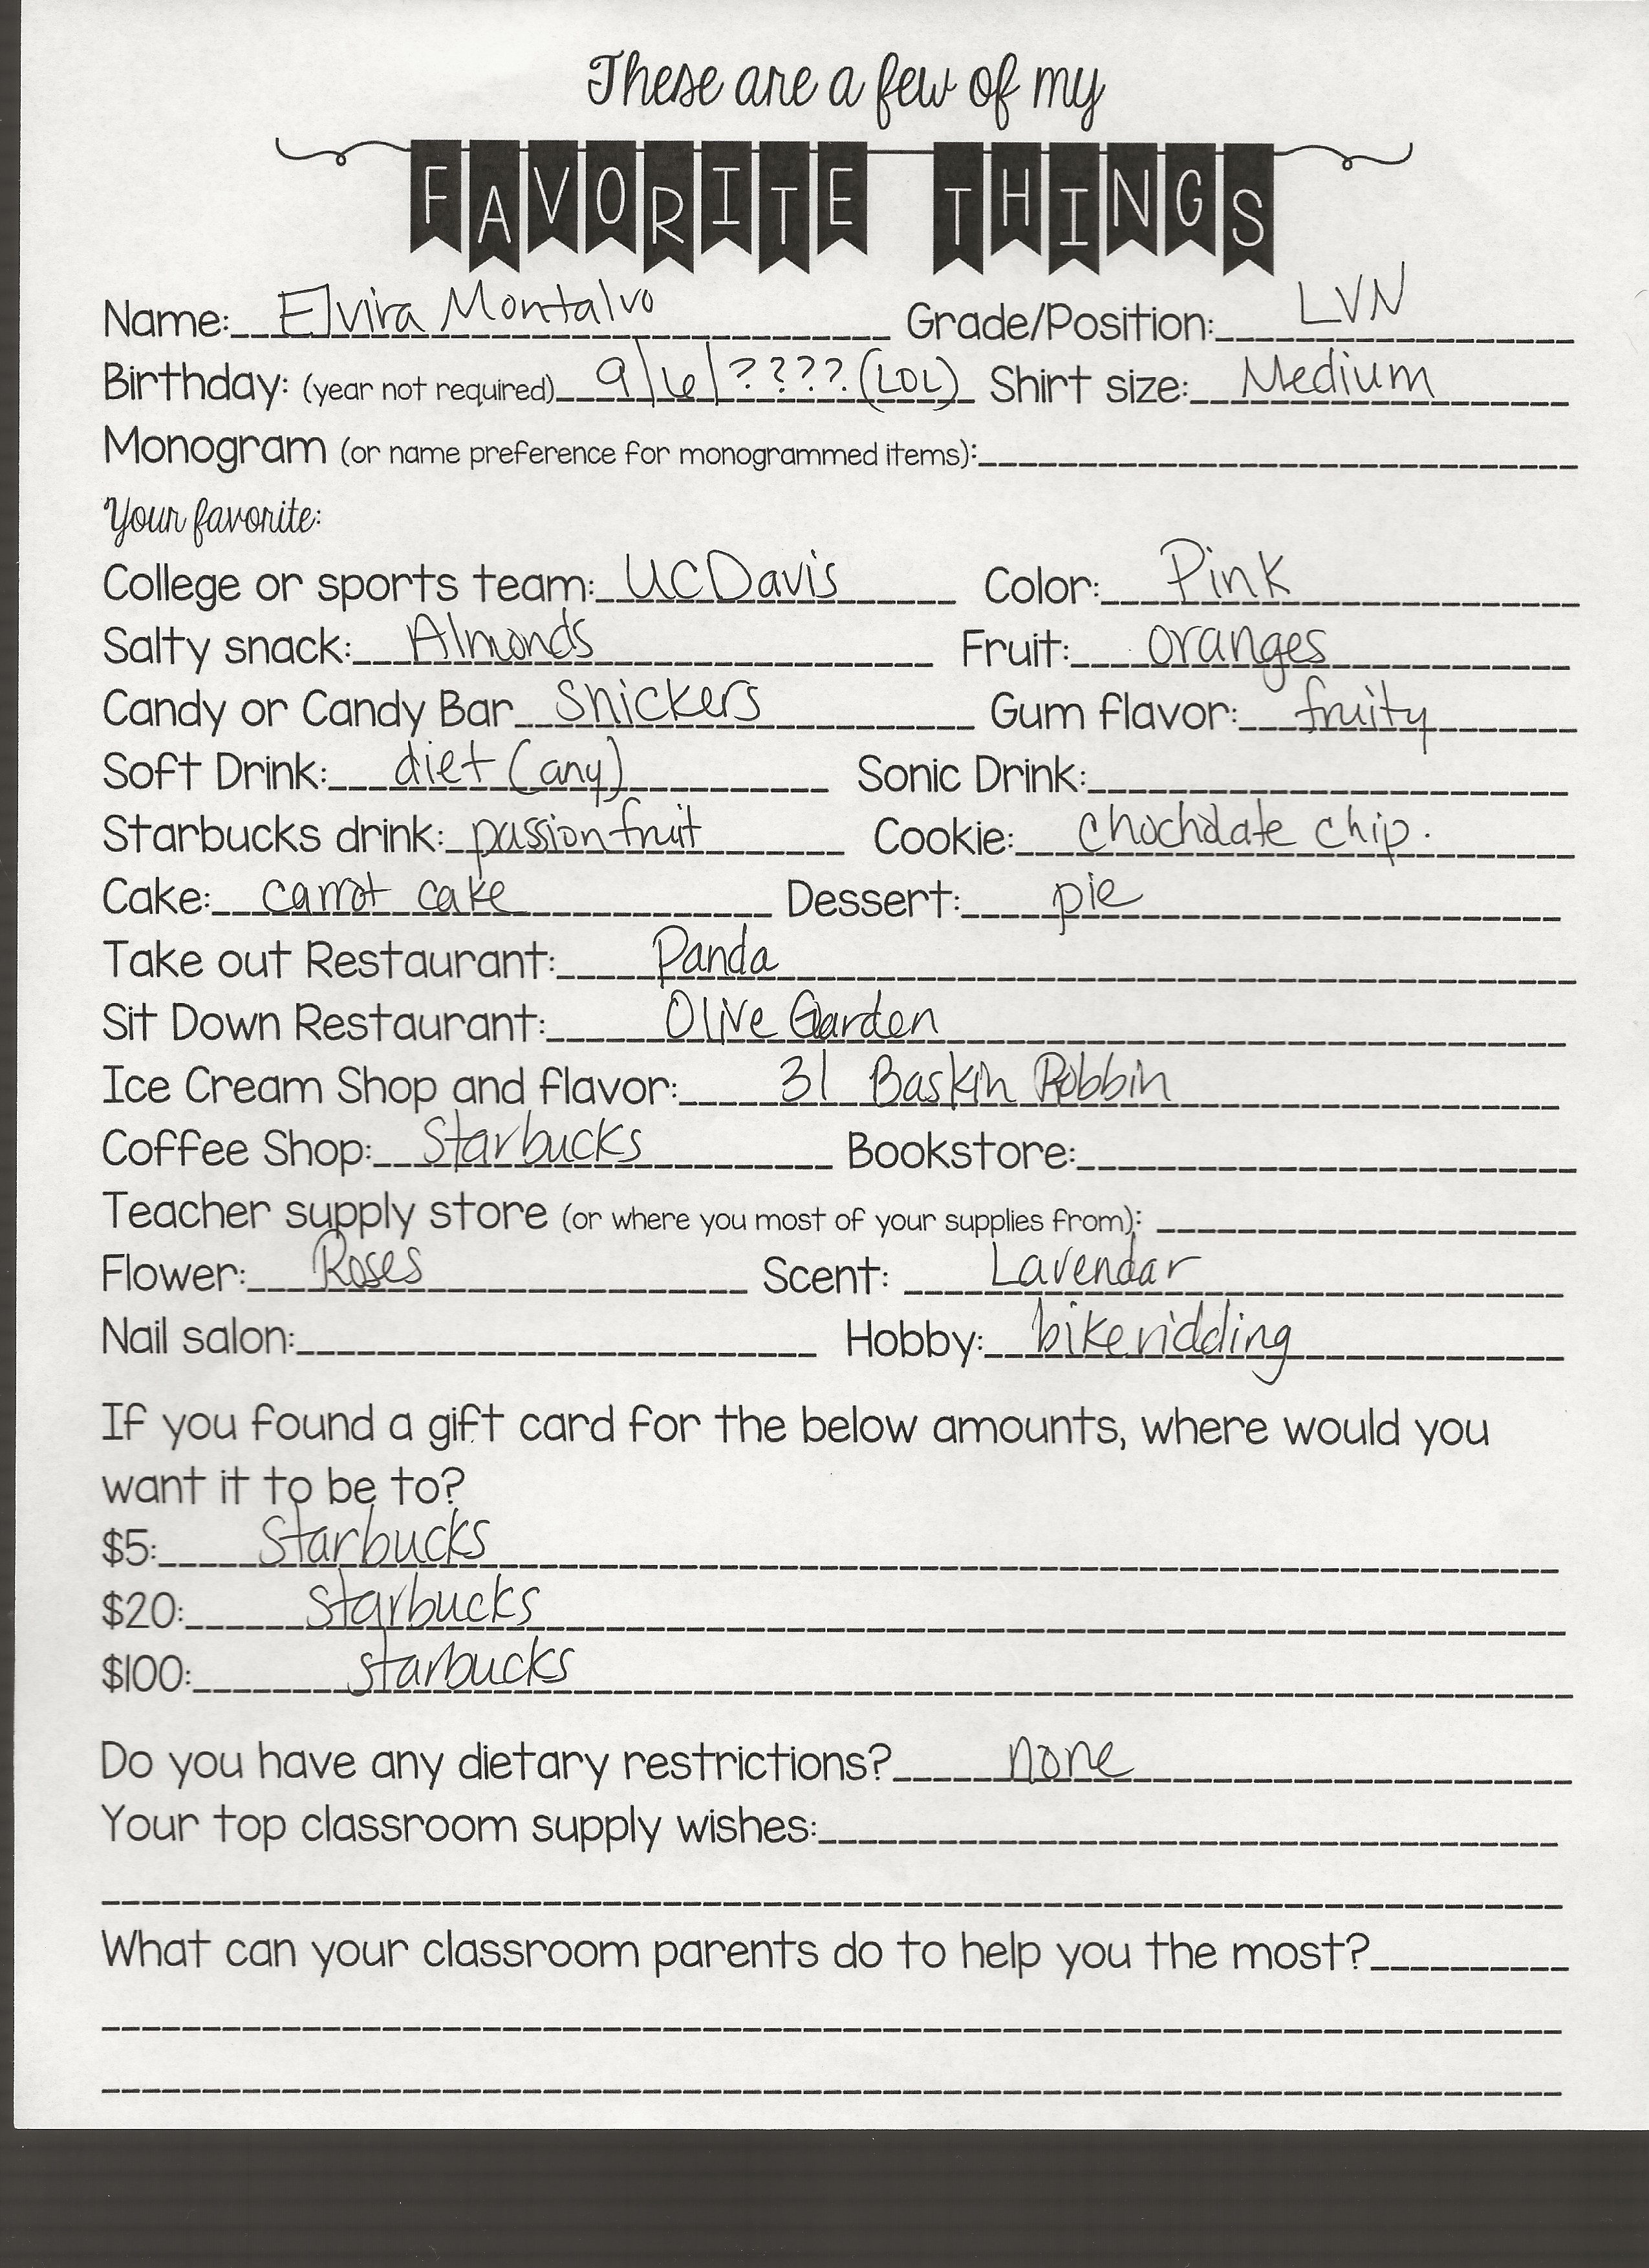 These are a few of my
FAVORITE THINGS
Name: Elvira Montalvo Grade/Position: LVN
Birthday: (year not required) 9/6/????(LOL) Shirt size: Medium
Monogram (or name preference for monogrammed items):
Your favorite:
College or sports team: UC Davis Color: Pink
Salty snack: Almonds Fruit: oranges
Candy or Candy Bar Snickers Gum flavor: fruity
Soft Drink: diet (any) Sonic Drink:
Starbucks drink: passion fruit Cookie: Chochdate chip.
Cake: carrot cake Dessert: pie
Take out Restaurant: Panda
Sit Down Restaurant: Olive Garden
Ice Cream Shop and flavor: 31 Baskin Robbin
Coffee Shop: Starbucks Bookstore:
Teacher supply store (or where you most of your supplies from):
Flower: Roses Scent: Lavendar
Nail salon: Hobby: bikeridding
If you found a gift card for the below amounts, where would you
want it to be to?
$5: Starbucks
$20: Starbucks
$100: starbucks
Do you have any dietary restrictions? none
Your top classroom supply wishes:
What can your classroom parents do to help you the most?